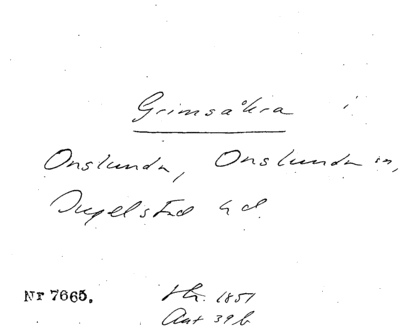 Grimsåkra i
Onslunda, Onslunda sn,
Ingelstad hd.
Nr 7665. Hr. 1851
Akt 39 b